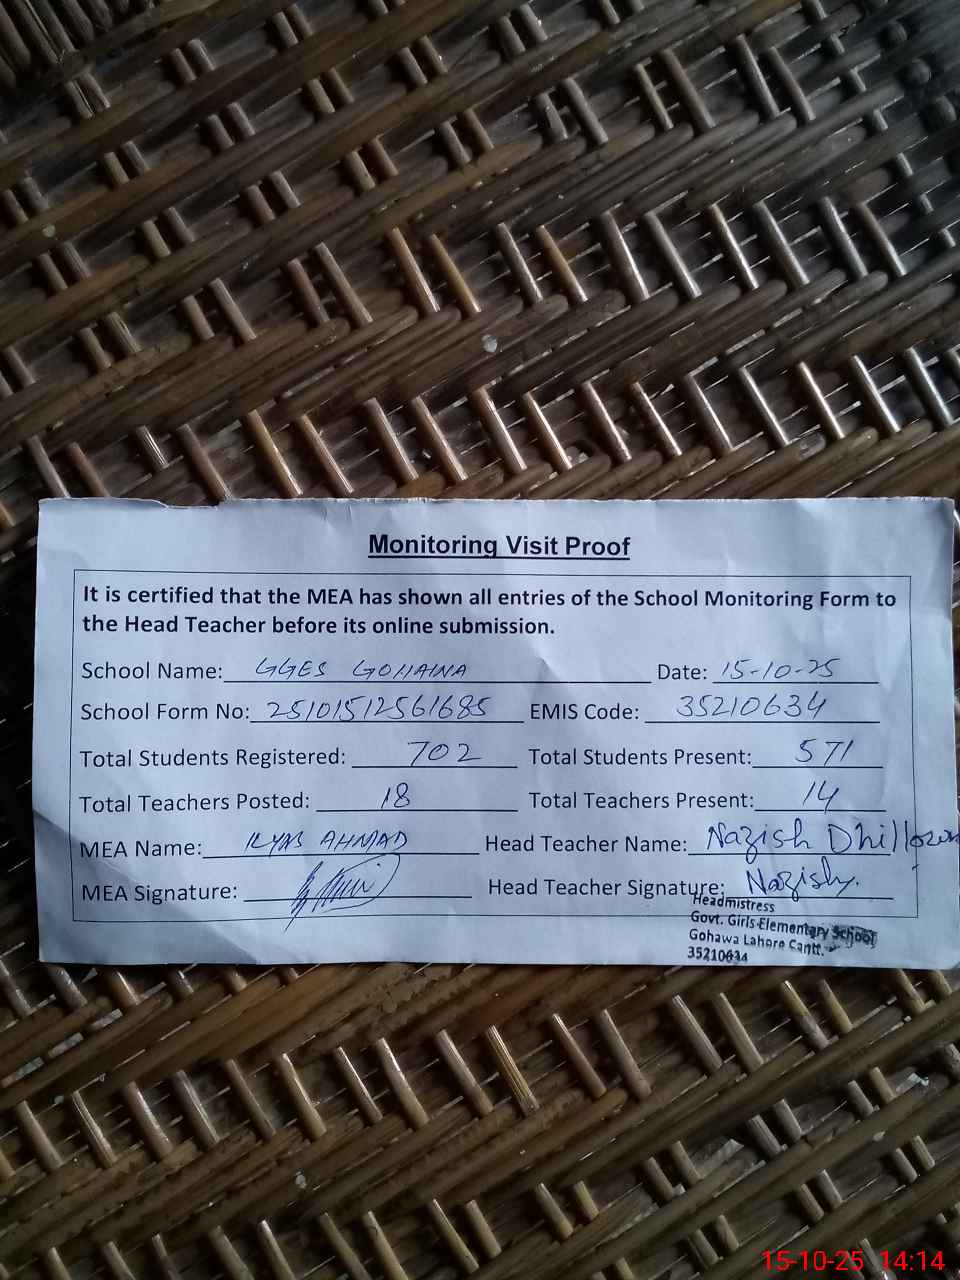 Monitoring Visit Proof
It is certified that the MEA has shown all entries of the School Monitoring Form to
the Head Teacher before its online submission.
School Name: GGES GOHAWA Date: 15-10-25
School Form No: 25101512561685 EMIS Code: 35210634
Total Students Registered: 702 Total Students Present: 571
Total Teachers Posted: 18 Total Teachers Present: 14
MEA Name: ILYAS AHMAD Head Teacher Name: Nazish Dhilloon
MEA Signature: Head Teacher Signature: Nazish
Headmistress
Govt. Girls Elementary School
Gohawa Lahore Cantt.
35210634
15-10-25 14:14